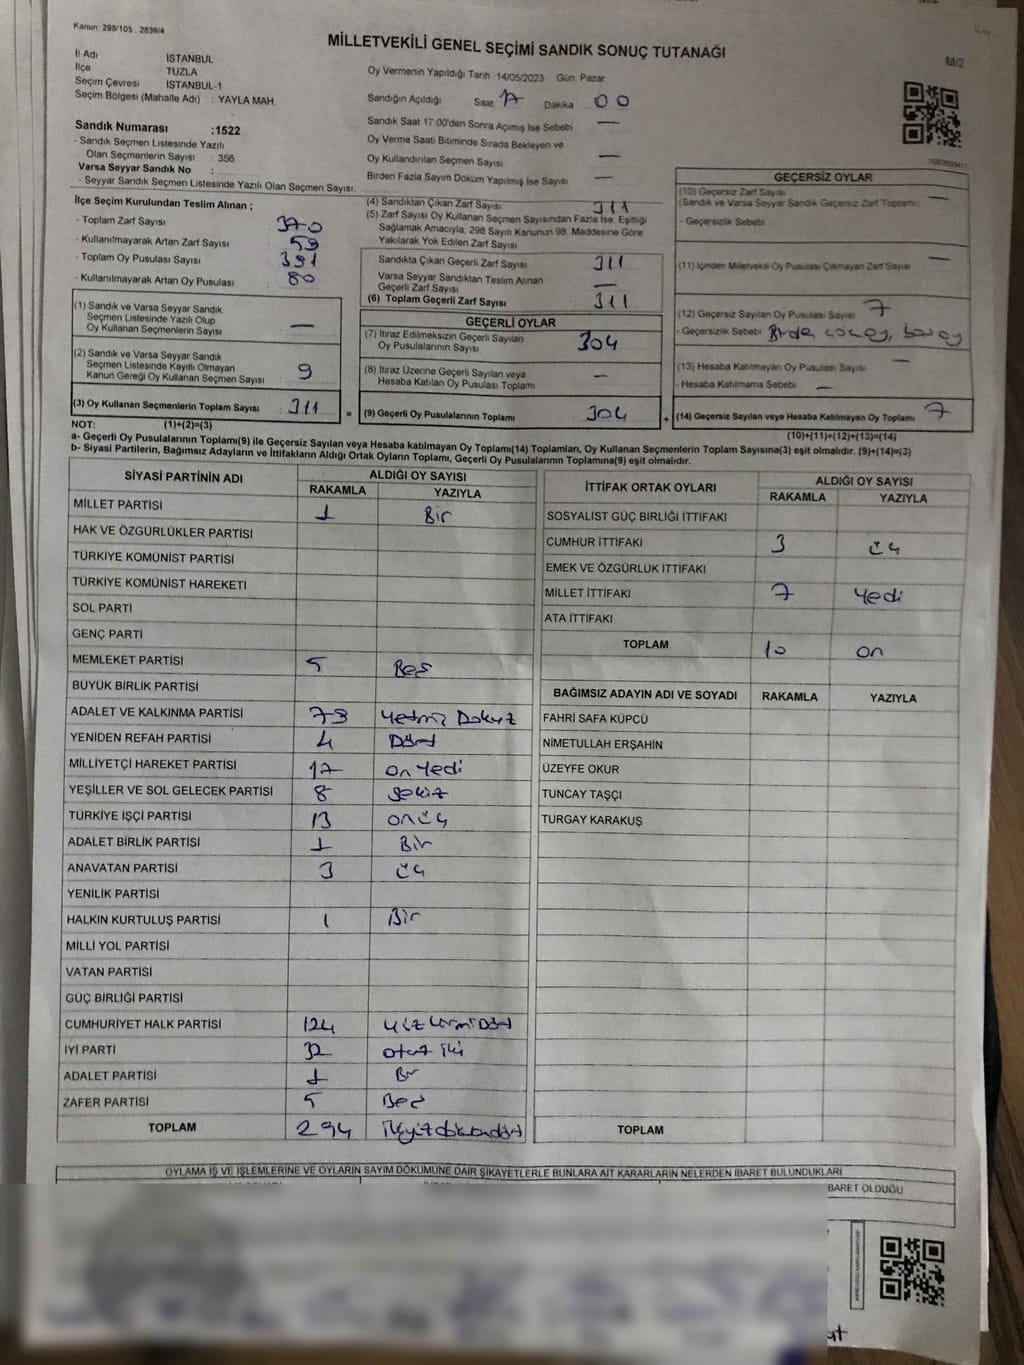 Kanun: 298/105 , 2839/4
MİLLETVEKİLİ GENEL SEÇİMİ SANDIK SONUÇ TUTANAĞI
M/2
İl Adı : İSTANBUL
İlçe TUZLA
Seçim Çevresi : İSTANBUL-1
Seçim Bölgesi (Mahalle Adı) : YAYLA MAH.
Sandık Numarası :1522
- Sandık Seçmen Listesinde Yazılı
Olan Seçmenlerin Sayısı : 356
Varsa Seyyar Sandık No :
- Seyyar Sandık Seçmen Listesinde Yazılı Olan Seçmen Sayısı:
Oy Vermenin Yapıldığı Tarih :14/05/2023 Gün: Pazar
Sandığın Açıldığı Saat 17 Dakika 00
Sandık Saat 17:00'den Sonra Açımış İse Sebebi —
Oy Verme Saati Bitiminde Sırada Bekleyen ve
Oy Kullandırılan Seçmen Sayısı —
Birden Fazla Sayım Döküm Yapılmış İse Sayısı —
İlçe Seçim Kurulundan Teslim Alınan ;
- Toplam Zarf Sayısı 370
- Kullanılmayarak Artan Zarf Sayısı : 59
- Toplam Oy Pusulası Sayısı : 391
- Kullanılmayarak Artan Oy Pusulası : 80
(1) Sandık ve Varsa Seyyar Sandık
Seçmen Listesinde Yazılı Olup
Oy Kullanan Seçmenlerin Sayısı : —
(2) Sandık ve Varsa Seyyar Sandık
Seçmen Listesinde Kayıtlı Olmayan
Kanun Gereği Oy Kullanan Seçmen Sayısı : 9
(3) Oy Kullanan Seçmenlerin Toplam Sayısı : 311 =
(4) Sandıktan Çıkan Zarf Sayısı 311
(5) Zarf Sayısı Oy Kullanan Seçmen Sayısından Fazla İse, Eşitliği
Sağlamak Amacıyla; 298 Sayılı Kanunun 98. Maddesine Göre
Yakılarak Yok Edilen Zarf Sayısı
Sandıkta Çıkan Geçerli Zarf Sayısı 311
Varsa Seyyar Sandıktan Teslim Alınan
Geçerli Zarf Sayısı —
(6) Toplam Geçerli Zarf Sayısı 311
GEÇERLİ OYLAR
(7) İtiraz Edilmeksizin Geçerli Sayılan
Oy Pusulalarının Sayısı 304
(8) İtiraz Üzerine Geçerli Sayılan veya
Hesaba Katılan Oy Pusulası Toplamı —
(9) Geçerli Oy Pusulalarının Toplamı 304 +
GEÇERSİZ OYLAR
(10) Geçersiz Zarf Sayısı —
(Sandık ve Varsa Seyyar Sandık Geçersiz Zarf Toplamı)
- Geçersizlik Sebebi
(11) İçinden Milletvekili Oy Pusulası Çıkmayan Zarf Sayısı —
(12) Geçersiz Sayılan Oy Pusulası Sayısı 7
- Geçersizlik Sebebi
(13) Hesaba Katılmayan Oy Pusulası Sayısı —
- Hesaba Katılmama Sebebi —
(14) Geçersiz Sayılan veya Hesaba Katılmayan Oy Toplamı 7
NOT: (1)+(2)=(3)
(10)+(11)+(12)+(13)=(14)
a- Geçerli Oy Pusulalarının Toplamı(9) ile Geçersiz Sayılan veya Hesaba katılmayan Oy Toplamı(14) Toplamları, Oy Kullanan Seçmenlerin Toplam Sayısına(3) eşit olmalıdır. (9)+(14)=(3)
b- Siyasi Partilerin, Bağımsız Adayların ve İttifakların Aldığı Ortak Oyların Toplamı, Geçerli Oy Pusulalarının Toplamına(9) eşit olmalıdır.
SİYASİ PARTİNİN ADI ALDIĞI OY SAYISI
RAKAMLA YAZIYLA
MİLLET PARTİSİ 1 Bir
HAK VE ÖZGÜRLÜKLER PARTİSİ
TÜRKİYE KOMÜNİST PARTİSİ
TÜRKİYE KOMÜNİST HAREKETİ
SOL PARTİ
GENÇ PARTİ
MEMLEKET PARTİSİ 5 Beş
BÜYÜK BİRLİK PARTİSİ
ADALET VE KALKINMA PARTİSİ 79 Yetmiş Dokuz
YENİDEN REFAH PARTİSİ 4 Dört
MİLLİYETÇİ HAREKET PARTİSİ 17 on Yedi
YEŞİLLER VE SOL GELECEK PARTİSİ 8 Sekiz
TÜRKİYE İŞÇİ PARTİSİ 13 onüç
ADALET BİRLİK PARTİSİ 1 Bir
ANAVATAN PARTİSİ 3 üç
YENİLİK PARTİSİ
HALKIN KURTULUŞ PARTİSİ 1 Bir
MİLLİ YOL PARTİSİ
VATAN PARTİSİ
GÜÇ BİRLİĞİ PARTİSİ
CUMHURİYET HALK PARTİSİ 124 yüz yirmi Dört
İYİ PARTİ 32 otuz iki
ADALET PARTİSİ 1 Bir
ZAFER PARTİSİ 5 Beş
TOPLAM 294 ikiyüzdoksandört
İTTİFAK ORTAK OYLARI ALDIĞI OY SAYISI
RAKAMLA YAZIYLA
SOSYALİST GÜÇ BİRLİĞİ İTTİFAKI
CUMHUR İTTİFAKI 3 üç
EMEK VE ÖZGÜRLÜK İTTİFAKI
MİLLET İTTİFAKI 7 Yedi
ATA İTTİFAKI
TOPLAM 10 on
BAĞIMSIZ ADAYIN ADI VE SOYADI RAKAMLA YAZIYLA
FAHRİ SAFA KÜPCÜ
NİMETULLAH ERŞAHİN
ÜZEYFE OKUR
TUNCAY TAŞÇI
TURGAY KARAKUŞ
TOPLAM
OYLAMA İŞ VE İŞLEMLERİNE VE OYLARIN SAYIM DÖKÜMÜNE DAİR ŞİKAYETLERLE BUNLARA AİT KARARLARIN NELERDEN İBARET BULUNDUKLARI
BARET OLDUĞU